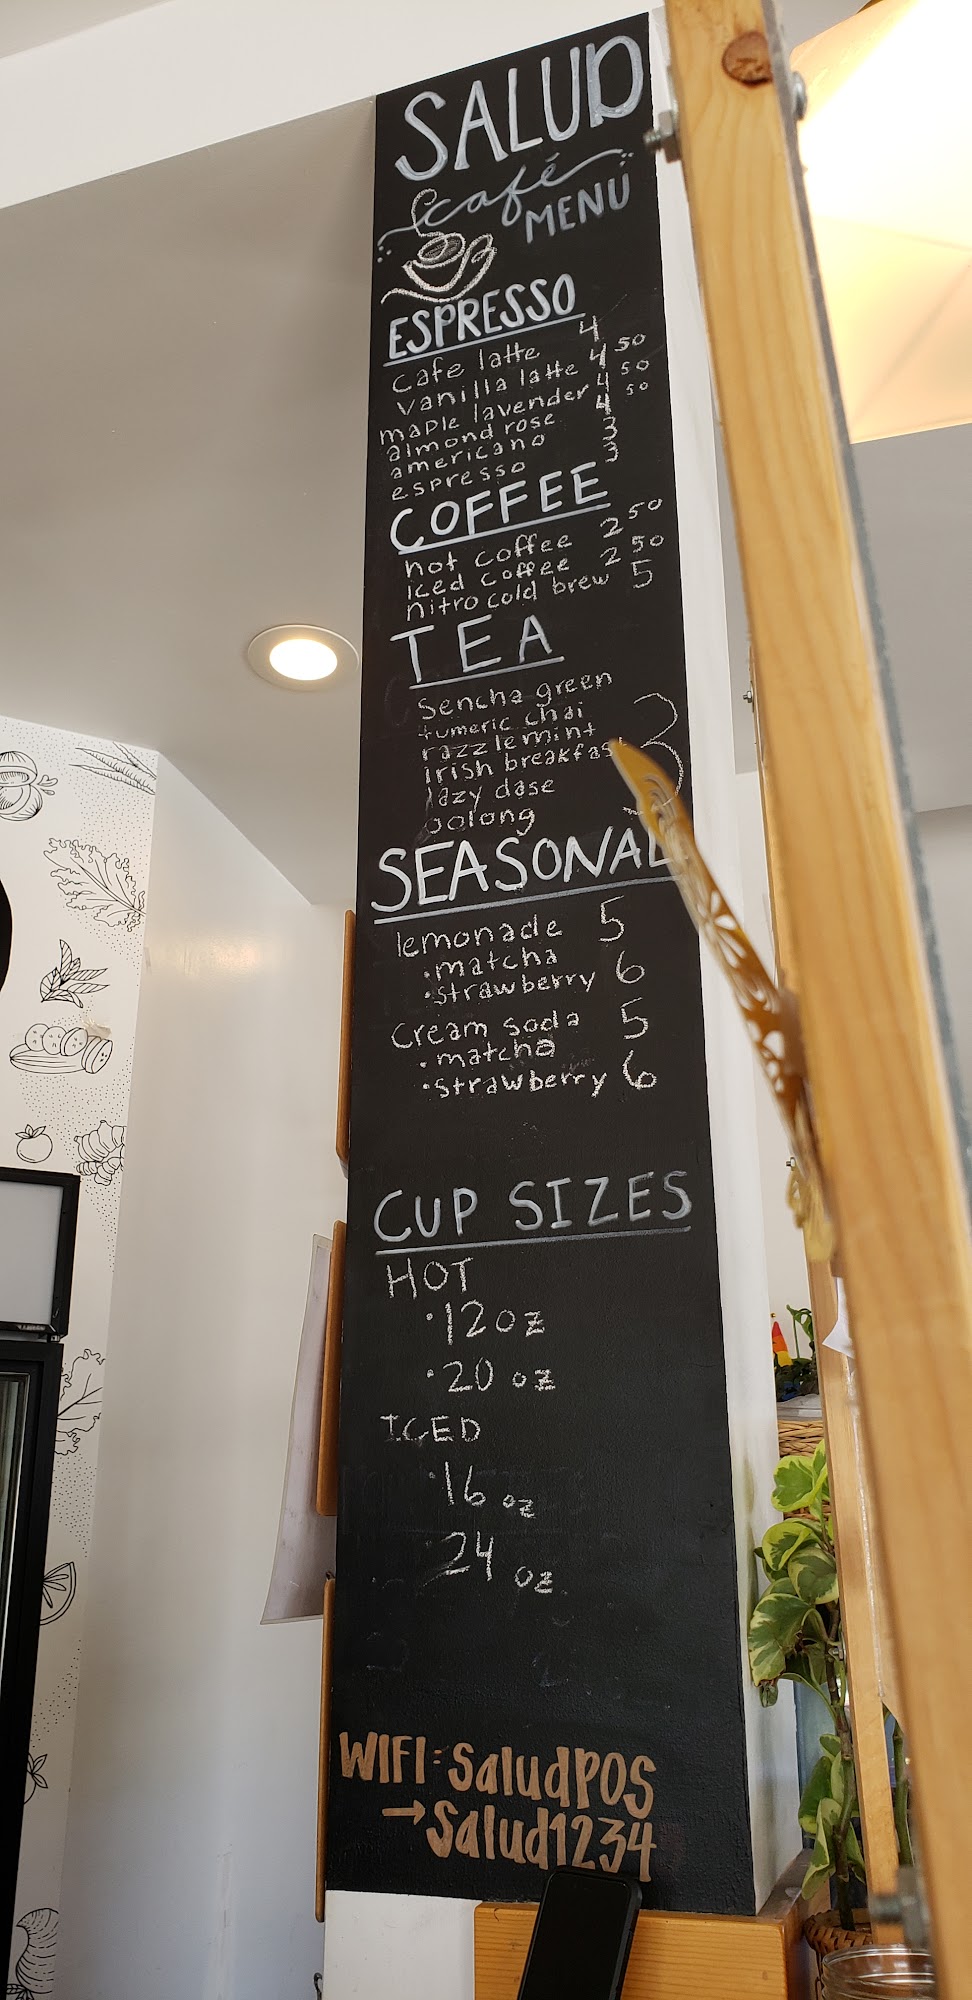 SALUD
café
MENU
ESPRESSO
cafe latte 4
vanilla latte 4 50
maple lavender 4 50
almond rose 4 50
americano 3
espresso 3
COFFEE
hot coffee 2 50
iced coffee 2 50
nitro cold brew 5
TEA
Sencha green
tumeric chai
razzlemint
irish breakfast 3
lazy dase
oolong
SEASONAL
lemonade 5
• matcha
• strawberry 6
cream soda 5
• matcha
• strawberry 6
CUP SIZES
HOT
• 12 oz
• 20 oz
ICED
• 16 oz
24 oz
WIFI: SaludPOS
→ Salud1234